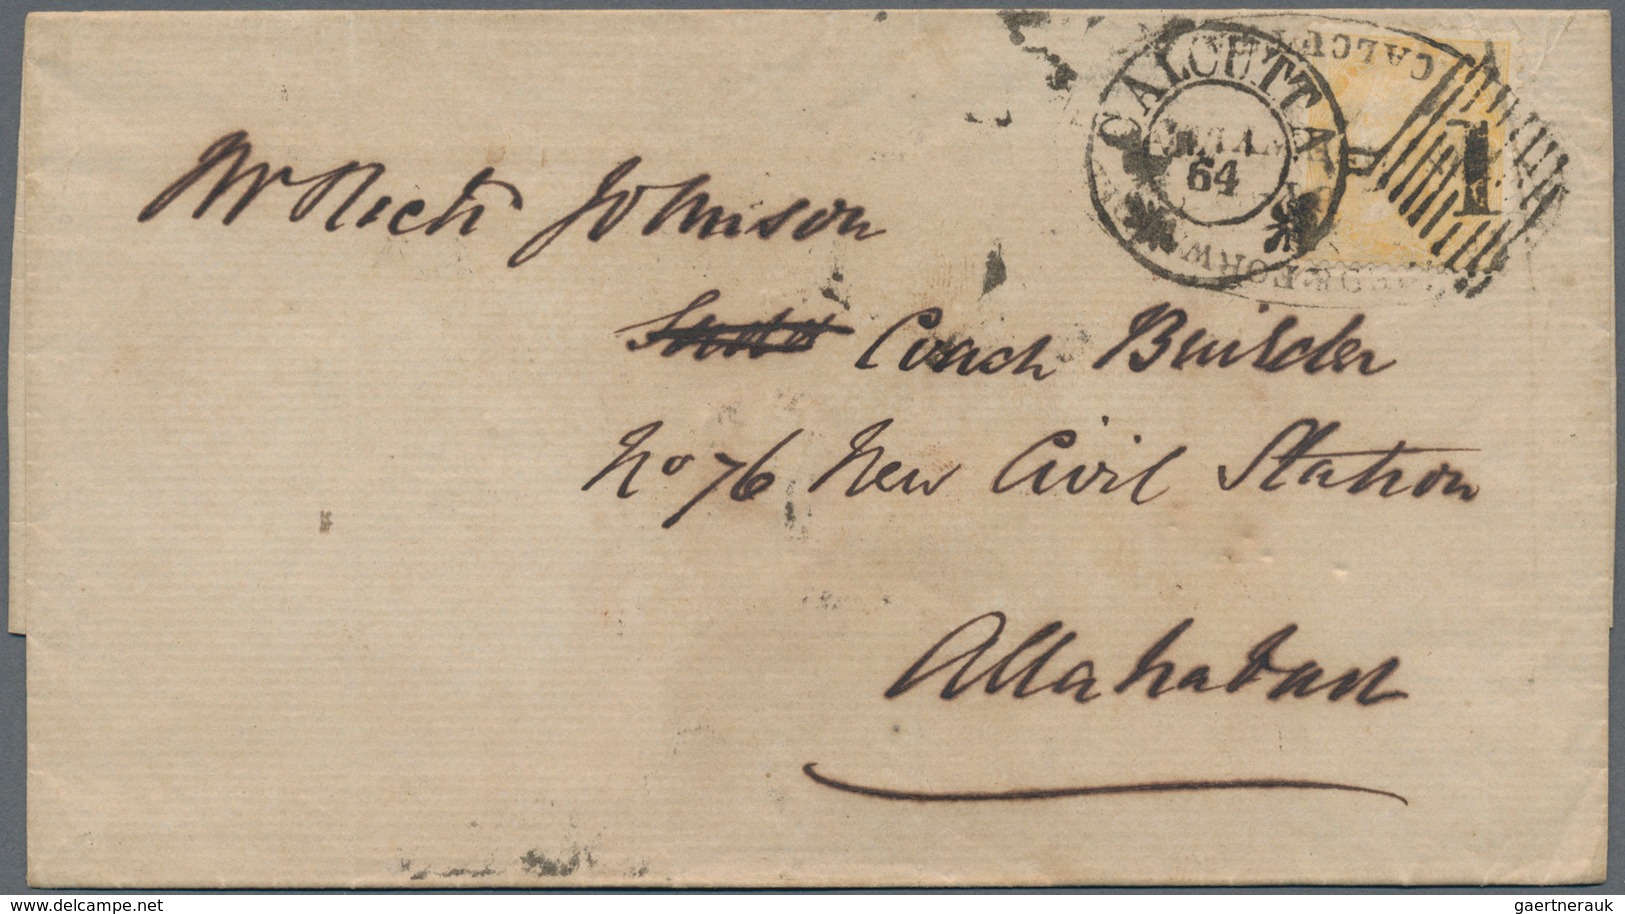 CALCUTTA
64
1
CALCU
FORW
Mr Richd Johnson
Coach Builder
No 76 New Civil Station
Allahabad
www.delcampe.net
gaertnerauk